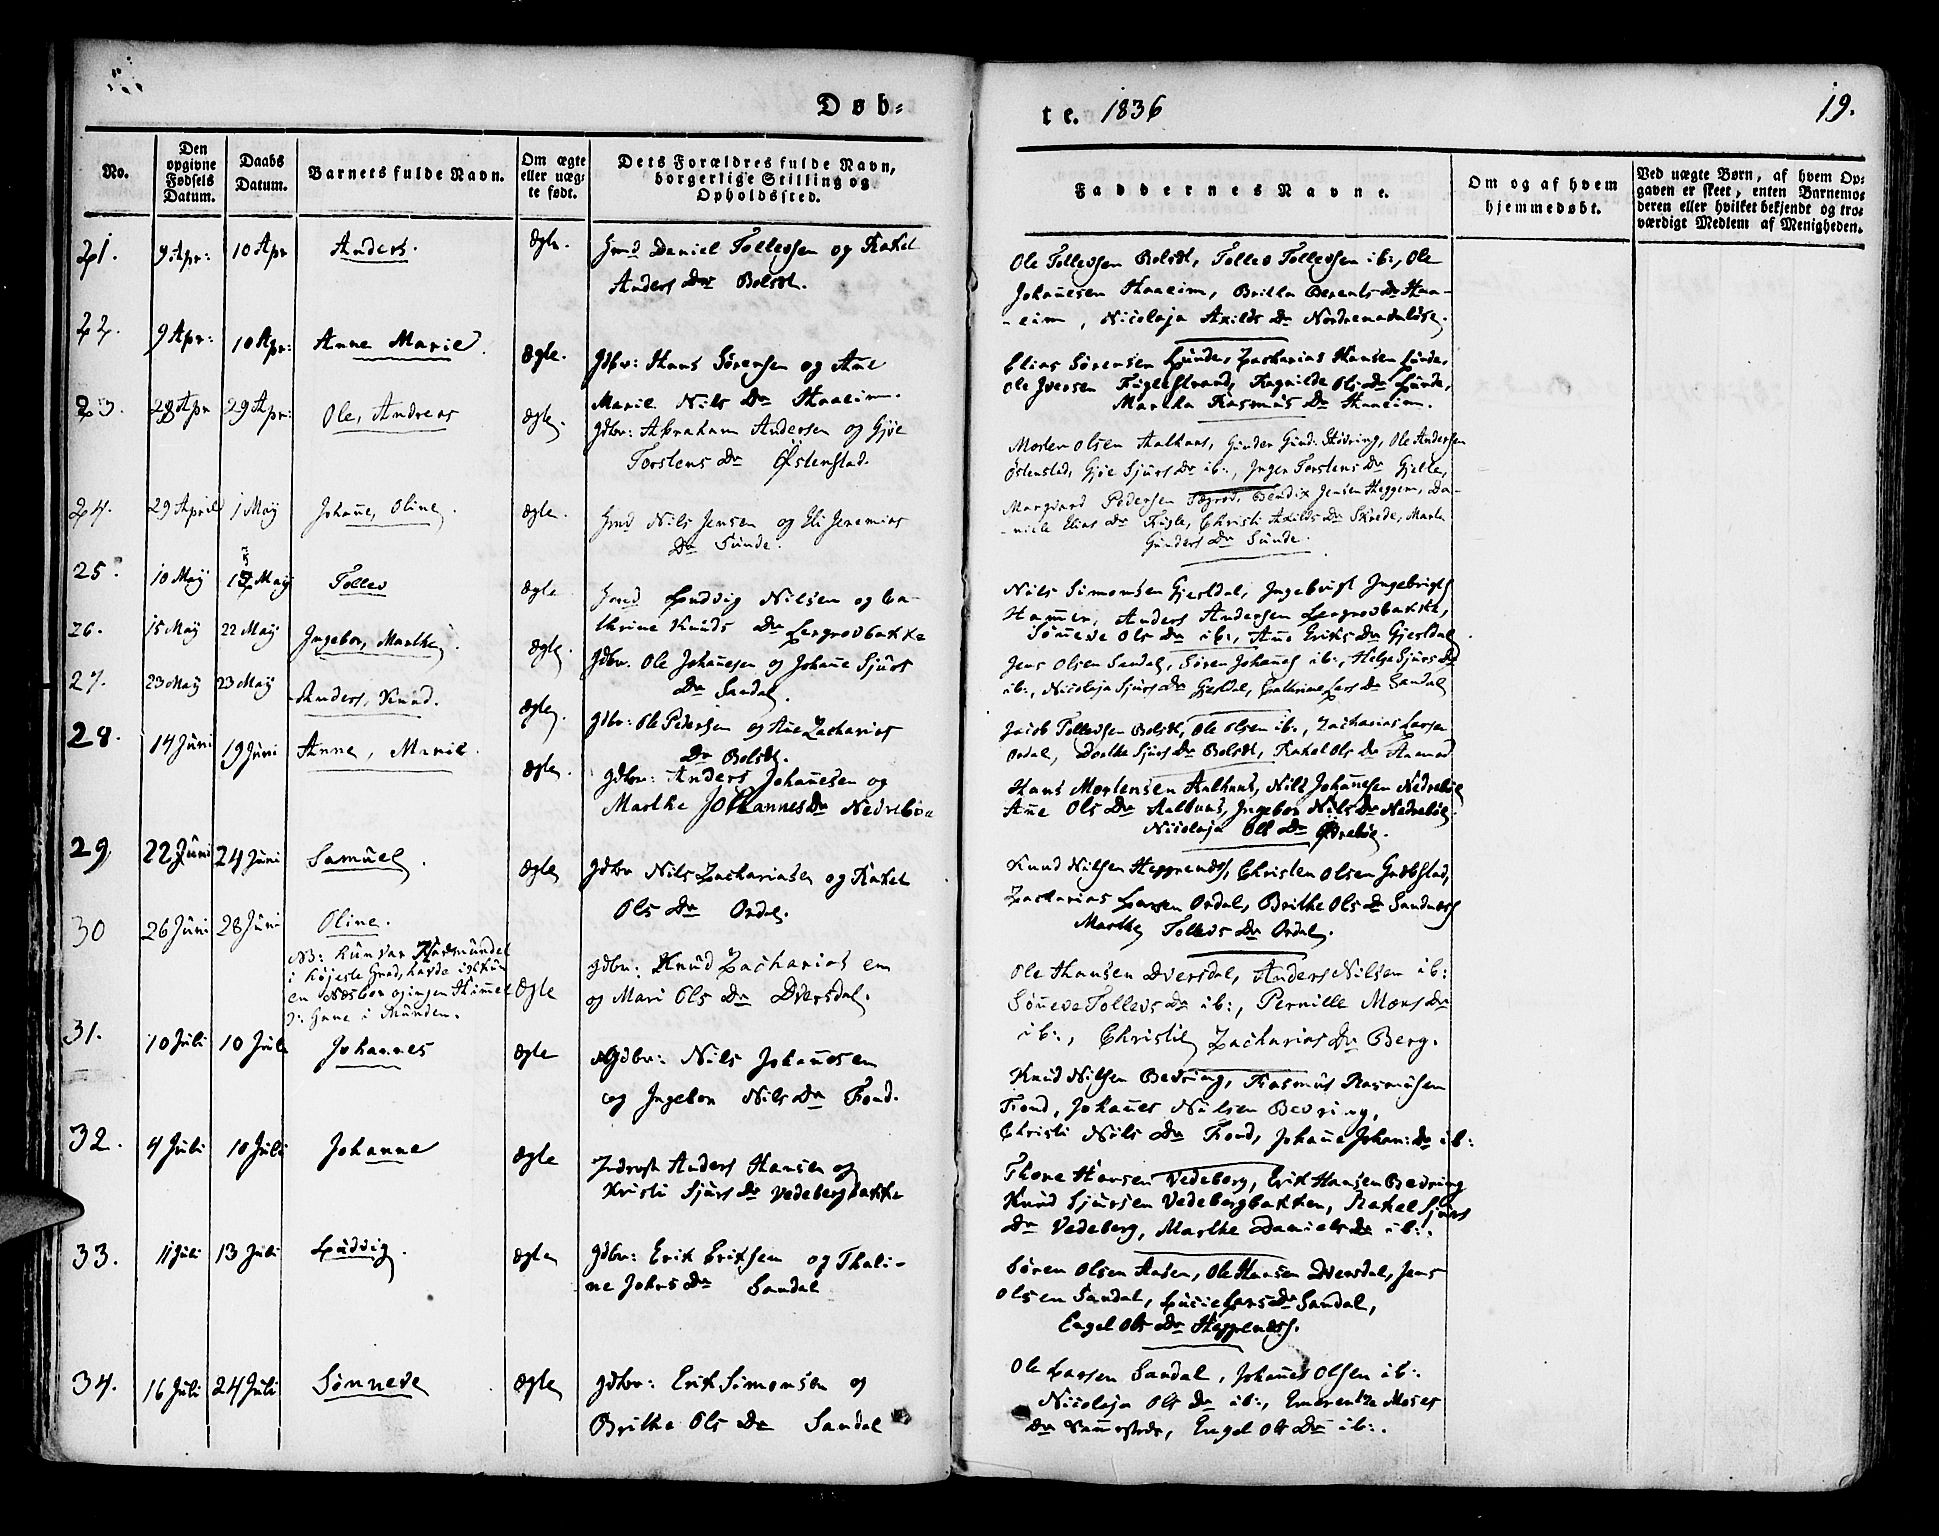 Døb=
te. 1836
19.
No.
Den opgivne Fødsels Datum.
Daabs Datum.
Barnets fulde Navn.
Om ægte eller uæg-te født.
Dets Forældres fulde Navn, borgerlige Stilling og Opholdssted.
Faddernes Navne.
Om og af hvem hjemmedøbt.
Ved uægte Børn, af hvem Op-gaven er skeet, enten Barnemo-deren eller hvilket bekjendt og tro-værdigt Medlem af Menigheden.
21. 9 Apr: 10 Apr Anders. Ægte. Daniel Tollevsen og Rakel
Anders Dr Bolset.
Ole Tollevsen Bolset, Tollev Tollevsen ib:, Ole
Johañesen Haaeim, Britha Berents Dr Haa-
-eim, Nicolaja Axilds Dr
22. 9 Apr: 10 Apr: Anne Marie. Ægte. Gdbr: Hans Sørensen og Añe
Marie Nils Dr Haaeim.
Elias Sørensen Lunde, Zacharias Hansen Lunde,
Ole Iversen Fuglestrand, Ragnilde Ols Dr Lunde,
Martha Rasmus Dr Haaeim.
23. 28 Apr 29 Apr: Ole, Andreas Ægte. Gdbr: Abraham Andersen og Gjøe
Torstens Dr Østenstad.
Morten Olsen Aalhuus, Gunder Gund: Støvring, Ole Andersen
Østenstad, Gjøe Sjurs Dr ib:, Inger Torstens Dr Gjelle,
24. 29 April 1 May Johañe, Oline. Ægte. Nils Jensen og Eli Jeremias
Dr Sunde.
Pedersen Bendix Jensen Heggem, Da-
-niele Elias Dr Fugle, Christi Axilds Dr Skrede, Marte
Gunders Dr Sunde.
25. 10 May May Tollev Ægte Ludvig Nilsen og Ca-
thrine Knuds Dr Lergrovbakke
Nils Simonsen Gjesdal, Ingebrigt Ingebrigts
Hammer, Anders Andersen Lergrovbakke,
Søñeve Ols Dr ib:, Añe Eriks Dr Gjesdal.
26. 15 May 22 May Ingebor, Marthe. Ægte. Gdbr. Ole Johañesen og Johañe Sjurs
Dr Sandal.
Jens Olsen Sandal, Søren Johañes ib:, Helge Sjurs Dr
ib:, Nicolaja Sjurs Dr Gjesdal, Cathrine Lars Dr Sandal
27. 23 May 23 May Anders, Knud. Ægte. Gdbr: Ole Pedersen og Añe Zacharias
Dr Bolset.
Jacob Tollevsen Bolset, Ole Olsen ib:, Zacharias Larsen
Ordal, Dorthe Sjurs Dr Bolset, Rakel Ols Dr
28. 14 Juni 19 Juni Anne, Marie. Ægte. Gdbr: Anders Johañesen og
Marthe Johannes Dr Nedrebøe
Hans Mortensen Aalhuus, Nils Johañesen Nedrebøe
Añe Ols Dr Aalhuus, Ingebor Nils Dr Nedrebøe.
Nicolaja Ols Dr Øvrebøe.
29 22 Juni 24 Juni Samuel. Ægte Gdbr Nils Zachariasen og Rakel
Ols Dr Ordal.
Knud Nilsen Heggenes, Christen Olsen Grøbstad,
Zacharias Larsen Ordal, Brithe Ols Dr Sandnes
Marthe Tollevs Dr Ordal.
30 26 Juni 28 Juni Oline. Ægte Gdbr: Knud Zacharias en
og Mari Ols Dr Dversdal.
NB: Hun var Haremundet
i højeste Grad, havde ikkun
en Næsbor og ingen Himmel
o: Gane i Munden.
Ole Hansen Dversdal, Anders Nilsen ib:
Søñeve Tollevs Dr ib:, Pernille Mons Dr
ib:, Christie Zacharias Dr Berg.
31. 10 Juli 10 Juli Johannes Ægte Gdbr: Nils Johañesen
og Ingebor Nils Dr Fond.
Knud Nilsen Bevring, Rasmus Rasmusen
Fond, Johañes Nilsen Bevring,
Christi Nils Dr Fond, Johañe Johan: Dr ib:
32. 4 Juli 10 Juli Johanne Ægte Inderst Anders Hansen og
Kristi Sjurs Dr Vedebergbakke
Thore Hansen Vedeberg, Erik Hansen Bevring
Knud Sjursen Vedebergbakken, Rakel Sjurs
Dr Vedeberg, Marthe Daniels Dr ib:.
33. 11 Juli 13 Juli Ludvig. Ægte Gdbr: Erik Eriksen og Thali-
ne Johns Dr Sandal
Søren Olsen Aasen, Ole Hansen Dversdal, Jens
Olsen Sandal, Lucie Lars Dr Sandal,
Engel Ols Dr Heggenes.
34. 16 Juli 24 Juli Sønneve Ægte Gdbr: Erik Simonsen og
Brithe Ols Dr Sandal
Ole Larsen Sandal, Johañes Olsen ib:.
Nicolaja Ols Dr ib:, Emerentze Moses
Dr Engel Ols Dr ib:.